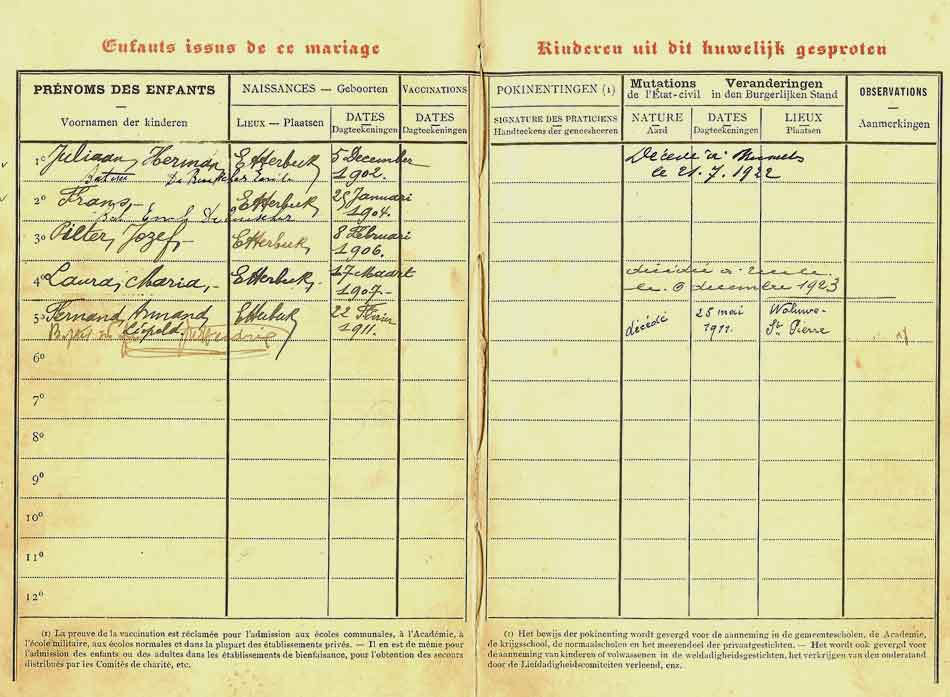 Enfants issus de ce mariage
Kinderen uit dit huwelijk gesproten
PRÉNOMS DES ENFANTS
Voornamen der kinderen
NAISSANCES — Geboorten
LIEUX — Plaatsen
DATES
Dagteekeningen
VACCINATIONS
DATES
Dagteekeningen
POKINENTINGEN (1)
SIGNATURE DES PRATICIENS
Handteekens der geneesheeren
Mutations Veranderingen
de l'État-civil in den Burgerlijken Stand
NATURE
Aard
DATES
Dagteekeningen
LIEUX
Plaatsen
OBSERVATIONS
Aanmerkingen
1º Juliaan, Herman Etterbeek 5 December
1902.
Décédé à
le 21.7.1922
2º Frans, Etterbeek 25 Januari
1904.
3º Pieter, Jozef, Etterbeek 8 Februari
1906.
4º Laura, Maria, Etterbeek. 17 Maart
1907.
décédée à
le 6 decembre 1923
5º Fernand, Armand, Etterbeek 22 Février
Léopold 1911.
décédé 25 mai Woluwe-
1911. St Pierre
6º
7º
8º
9º
10º
11º
12º
(1) La preuve de la vaccination est réclamée pour l'admission aux écoles communales, à l'Académie, à
l'école militaire, aux écoles normales et dans la plupart des établissements privés. — Il en est de même pour
l'admission des enfants ou des adultes dans les établissements de bienfaisance, pour l'obtention des secours
distribués par les Comités de charité, etc.
(1) Het bewijs der pokinenting wordt gevergd voor de aanneming in de gemeentescholen, de Academie,
de krijgsschool, de normaalscholen en het meerendeel der privaatgestichten. — Het wordt ook gevergd voor
de aanneming van kinderen of volwassenen in de weldadigheidsgestichten, het verkrijgen van den onderstand
door de Liefdadigheidscomiteiten verleend, enz.